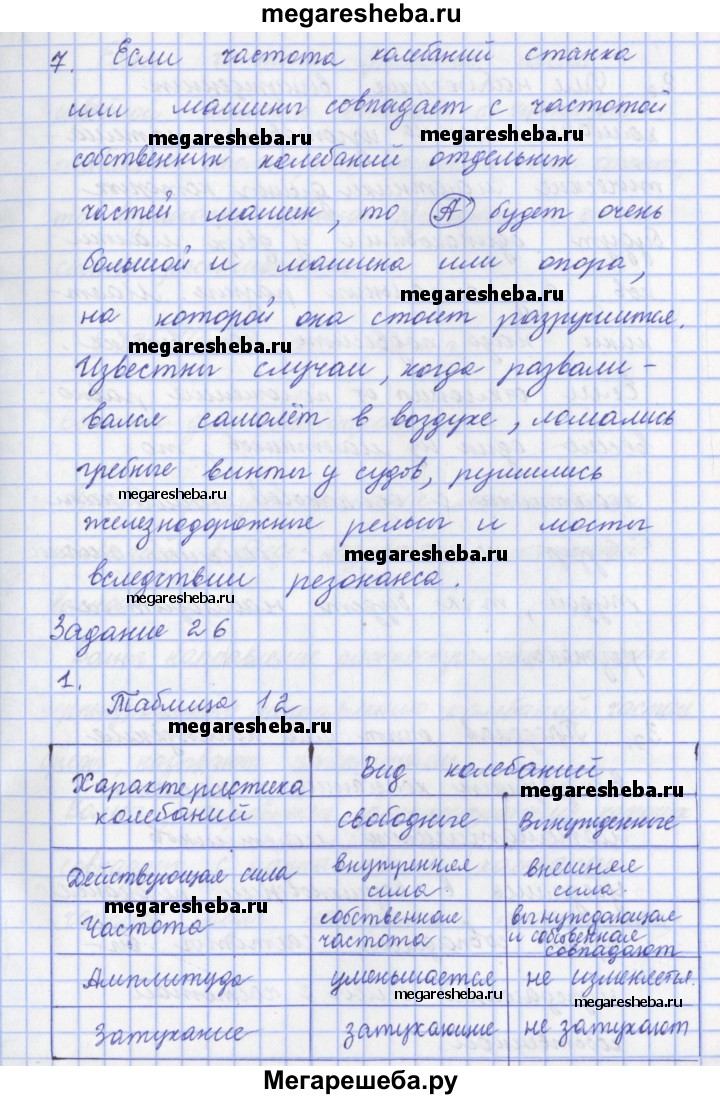 megaresheba.ru
7. Если частота колебаний станка
или машины совпадает с частотой
megaresheba.ru megaresheba.ru
собственных колебаний отдельных
частей машин, то A будет очень
большой и машина или опора,
megaresheba.ru
на которой она стоит разрушится.
megaresheba.ru
Известны случаи, когда развали-
вался самолёт в воздухе, ломались
гребные винты у судов, рушились
megaresheba.ru
железнодорожные рельсы и мосты
megaresheba.ru
вследствии резонанса.
megaresheba.ru
Задание 26
1.
Таблица 12
megaresheba.ru
Характеристика колебаний | Вид колебаний
megaresheba.ru
свободные | Вынужденные
Действующая сила | внутренняя сила. | внешняя сила.
megaresheba.ru
Частота | собственная частота | вынуждающая и собственная совпадают
Амплитуда | уменьшается | не изменяется.
megaresheba.ru megaresheba.ru
Затухание | затухающие | не затухают
megaresheba.ru
Мегарешеба.ру